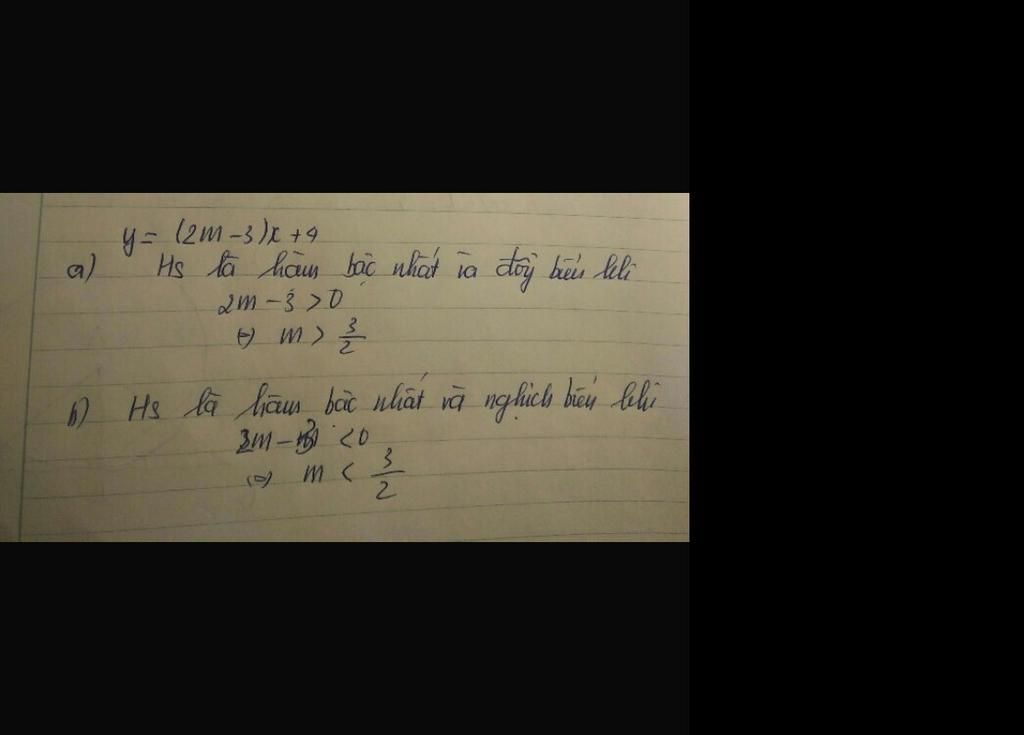 y = (2m - 3)x + 4
a) Hs là hàm bậc nhất và đồng biến khi
2m - 3 > 0
(=) m > 3/2
b) Hs là hàm bậc nhất và nghịch biến khi
2m - 3 < 0
(=) m < 3/2